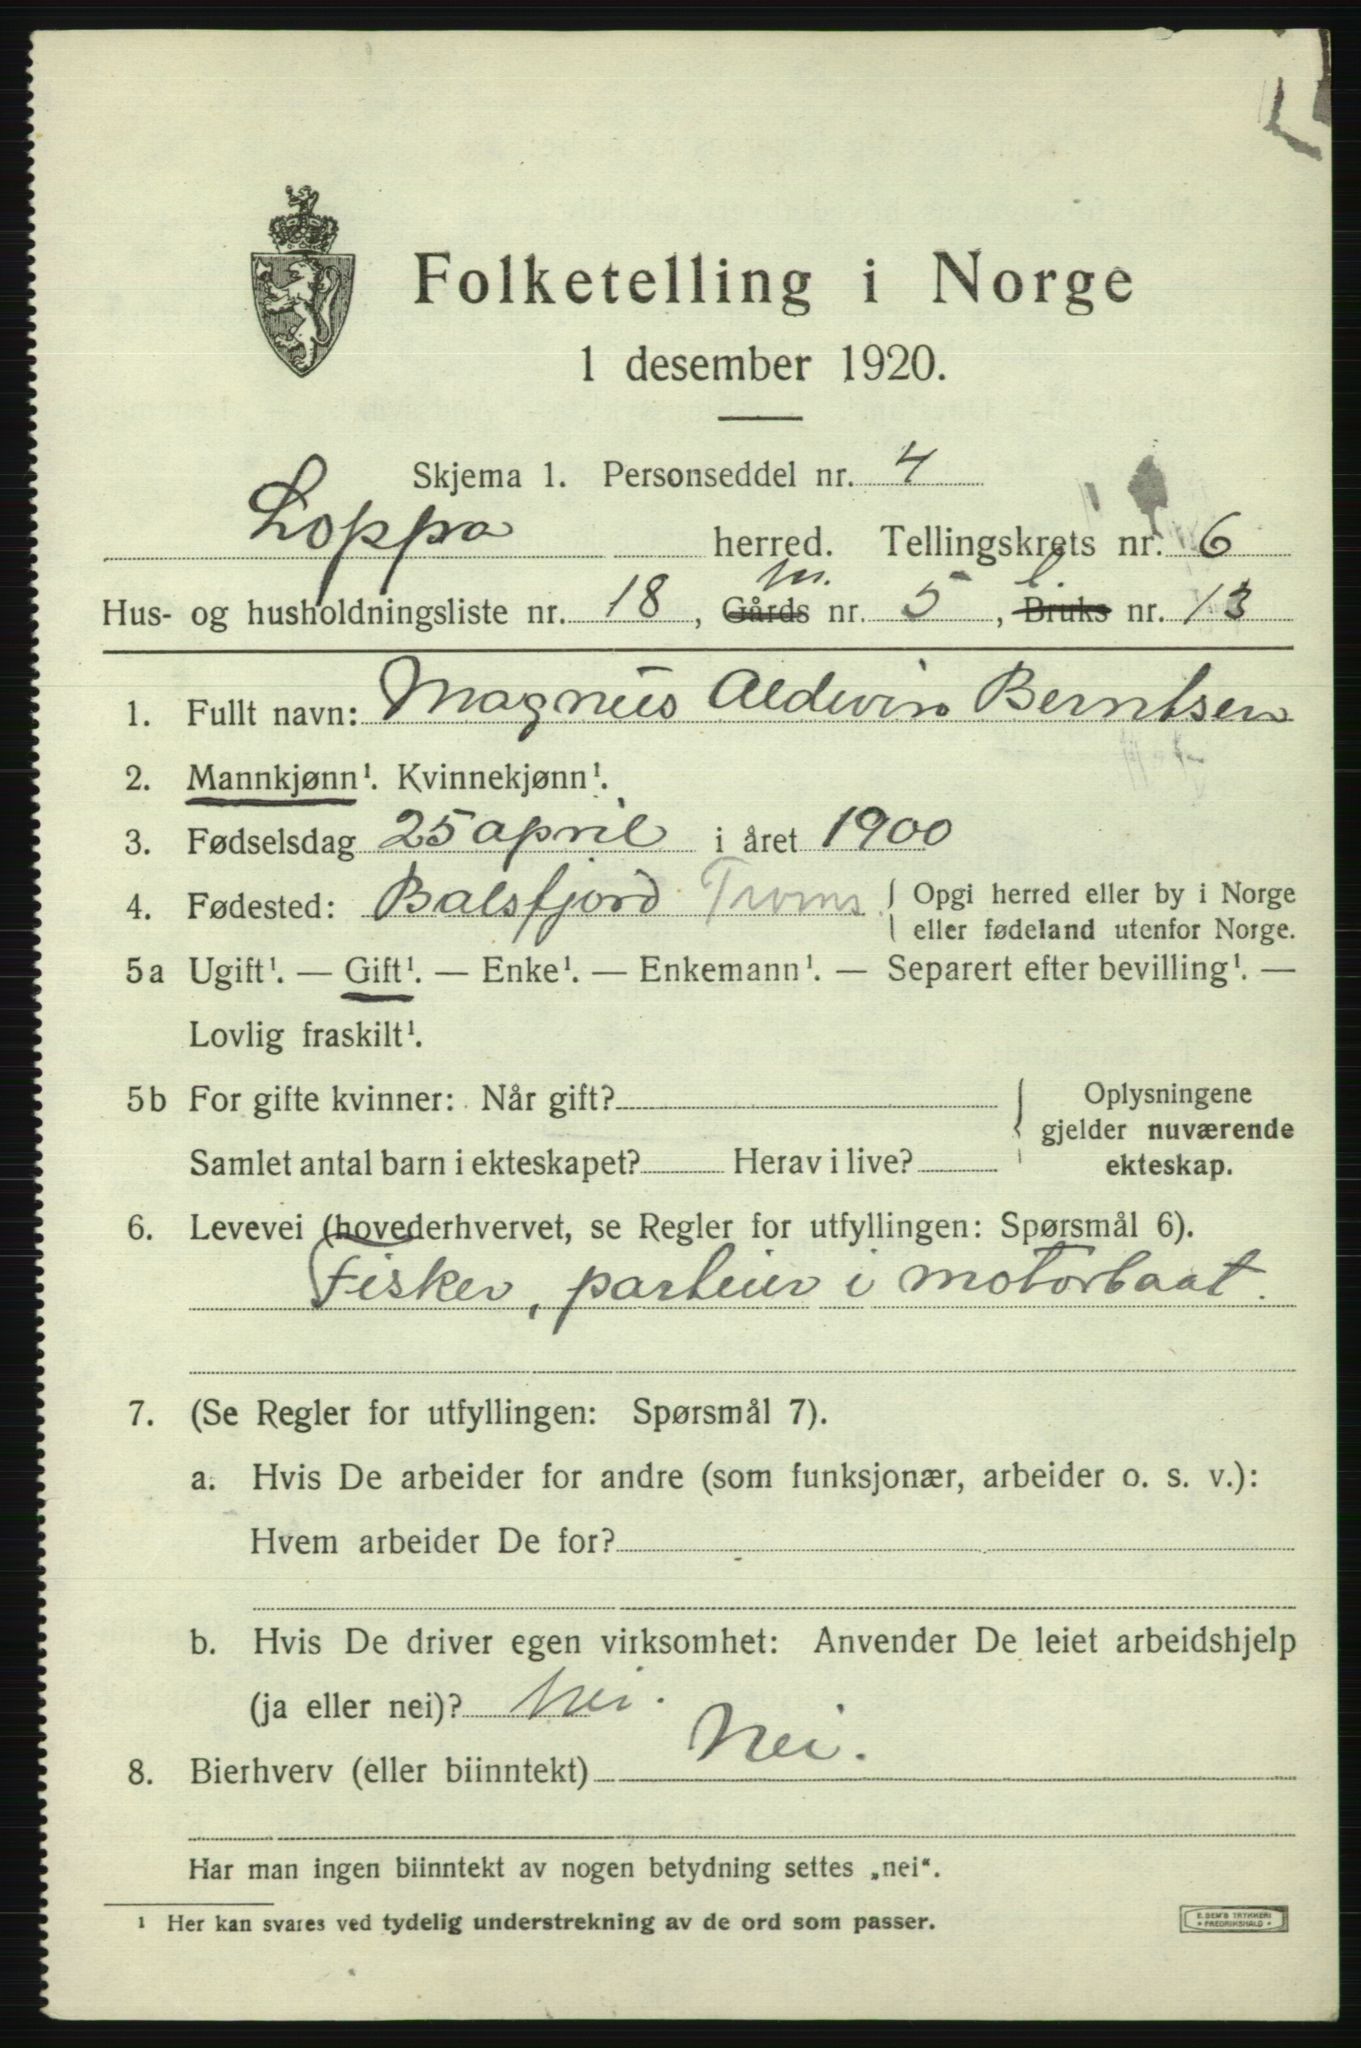 Folketelling i Norge
1 desember 1920.
Skjema 1. Personseddel nr. 4
Loppa herred. Tellingskrets nr. 6
m. l.
Hus- og husholdningsliste nr. 18, Gårds nr. 5, Bruks nr. 13
1. Fullt navn: Magnus Aldwin Berntsen
2. Mannkjønn¹. Kvinnekjønn¹.
3. Fødselsdag 25 april i året 1900
4. Fødested: Balsfjord Troms { Opgi herred eller by i Norge
eller fødeland utenfor Norge.
5a Ugift¹. — Gift¹. — Enke¹. — Enkemann¹. — Separert efter bevilling¹. —
Lovlig fraskilt¹.
5b For gifte kvinner: Når gift? { Oplysningene
gjelder nuværende
Samlet antal barn i ekteskapet? Herav i live? ekteskap.
6. Levevei (hovederhvervet, se Regler for utfyllingen: Spørsmål 6).
Fisker, parteier i motorbaat.
7. (Se Regler for utfyllingen: Spørsmål 7).
a. Hvis De arbeider for andre (som funksjonær, arbeider o. s. v.):
Hvem arbeider De for?
b. Hvis De driver egen virksomhet: Anvender De leiet arbeidshjelp
(ja eller nei)? Nei.
8. Bierhverv (eller biinntekt) Nei.
Har man ingen biinntekt av nogen betydning settes „nei“.
¹ Her kan svares ved tydelig understrekning av de ord som passer.
E. SEM'S TRYKKERI
* FREDRIKSHALD *